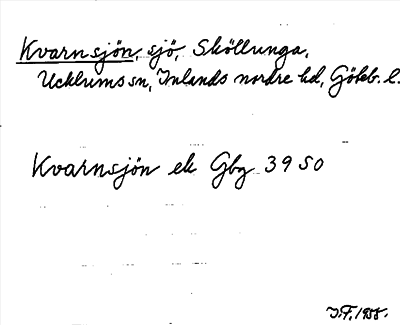 Kvarnsjön, sjö, Sköllunga,
Ucklums sn, Inlands nordre hd, Göteb. l.
Kvarnsjön ek Gbg 39 SO